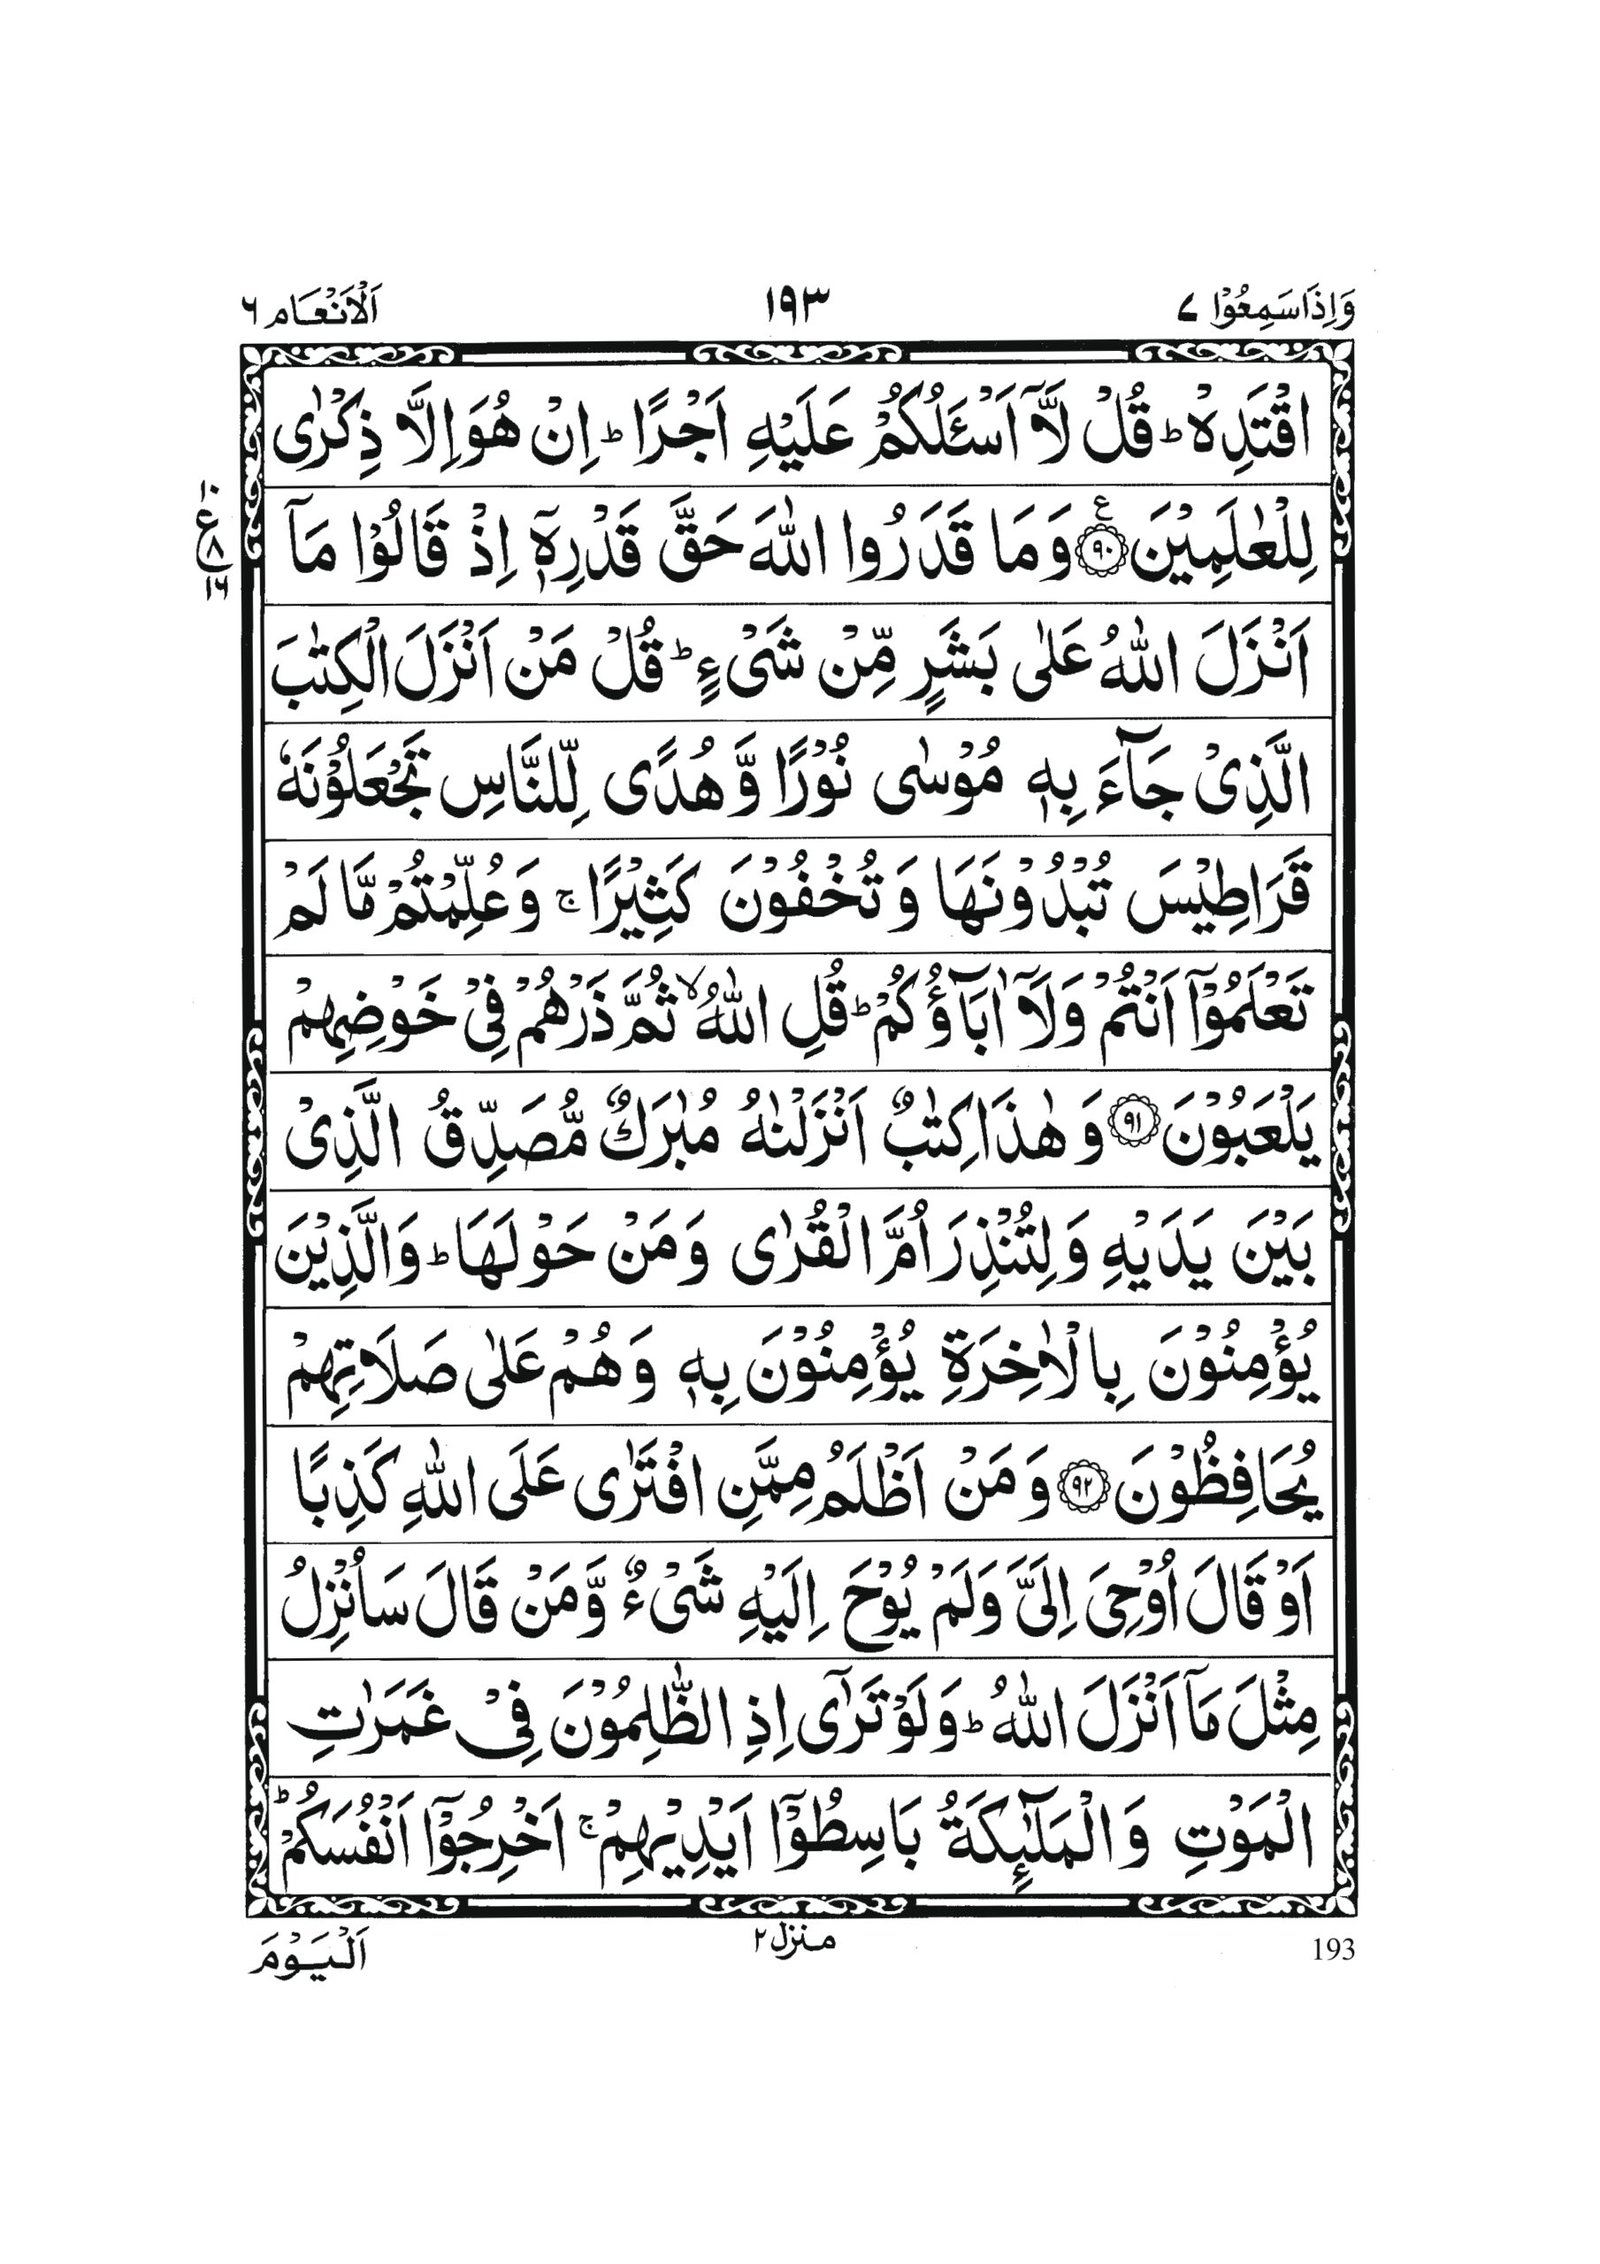 وَاِذَاسَمِعُوْا ۷ ۱۹۳ اَلْاَنْعَام ۶
اقْتَدِهْ ؕ قُلْ لَّاۤ اَسْـَٔلُكُمْ عَلَيْهِ اَجْرًا ؕ اِنْ هُوَ اِلَّا ذِكْرٰى
لِلْعٰلَمِيْنَ ۹۰ ع وَمَا قَدَرُوا اللّٰهَ حَقَّ قَدْرِهٖۤ اِذْ قَالُوْا مَاۤ
۱۰ ع ۸ ۱۶
اَنْزَلَ اللّٰهُ عَلٰى بَشَرٍ مِّنْ شَىْءٍ ؕ قُلْ مَنْ اَنْزَلَ الْكِتٰبَ
الَّذِىْ جَآءَ بِهٖ مُوْسٰى نُوْرًا وَّ هُدًى لِّلنَّاسِ تَجْعَلُوْنَهٗ
قَرَاطِيْسَ تُبْدُوْنَهَا وَ تُخْفُوْنَ كَثِيْرًا ۚ وَ عُلِّمْتُمْ مَّا لَمْ
تَعْلَمُوْۤا اَنْتُمْ وَلَاۤ اٰبَآؤُكُمْ ؕ قُلِ اللّٰهُ ۙ ثُمَّ ذَرْهُمْ فِىْ خَوْضِهِمْ
يَلْعَبُوْنَ ۹۱ وَ هٰذَا كِتٰبٌ اَنْزَلْنٰهُ مُبٰرَكٌ مُّصَدِّقُ الَّذِىْ
بَيْنَ يَدَيْهِ وَ لِتُنْذِرَ اُمَّ الْقُرٰى وَ مَنْ حَوْلَهَا ؕ وَالَّذِيْنَ
يُؤْمِنُوْنَ بِالْاٰخِرَةِ يُؤْمِنُوْنَ بِهٖ وَ هُمْ عَلٰى صَلَاتِهِمْ
يُحَافِظُوْنَ ۹۲ وَ مَنْ اَظْلَمُ مِمَّنِ افْتَرٰى عَلَى اللّٰهِ كَذِبًا
اَوْ قَالَ اُوْحِىَ اِلَىَّ وَلَمْ يُوْحَ اِلَيْهِ شَىْءٌ وَّ مَنْ قَالَ سَاُنْزِلُ
مِثْلَ مَاۤ اَنْزَلَ اللّٰهُ ؕ وَ لَوْ تَرٰٓى اِذِ الظّٰلِمُوْنَ فِىْ غَمَرٰتِ
الْمَوْتِ وَ الْمَلٰٓئِكَةُ بَاسِطُوْۤا اَيْدِيْهِمْ ۚ اَخْرِجُوْۤا اَنْفُسَكُمْ ؕ
اَلْيَوْمَ منزل ۲ 193